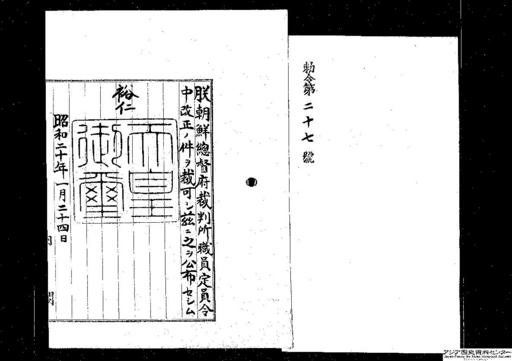 勅令第二十七號
朕朝鮮總督府裁判所職員定員令
中改正ノ件ヲ裁可シ茲ニ之ヲ公布セシム
裕仁
天皇
御璽
昭和二十年一月二十四日
アジア歴史資料センター